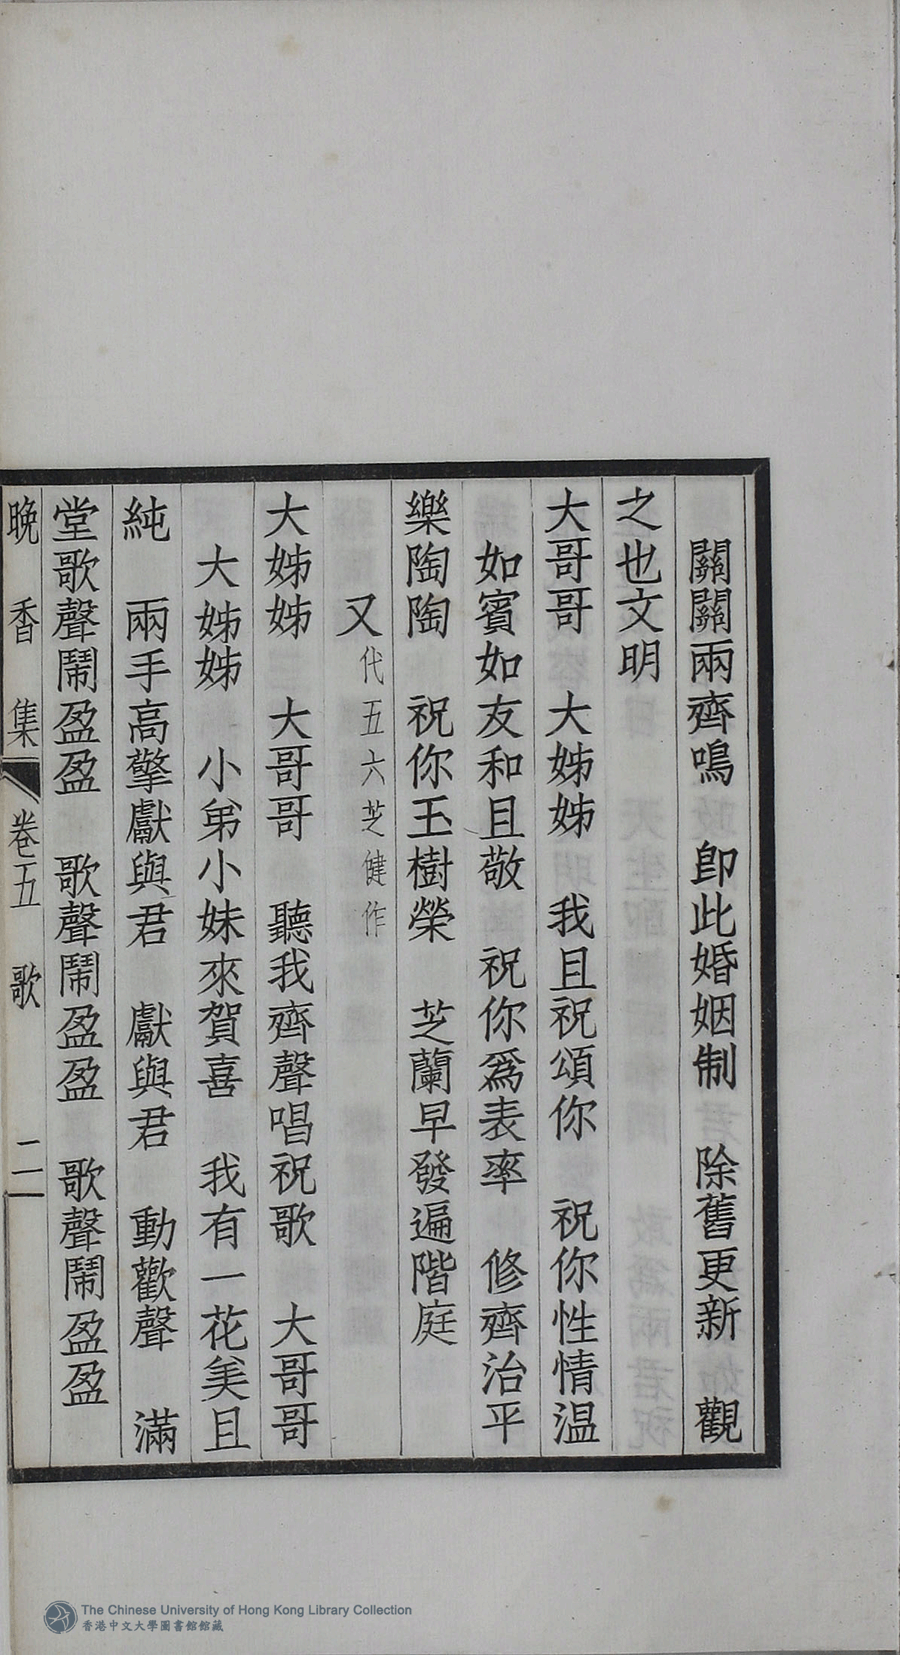 關關兩齊鳴　卽此婚姻制　除舊更新　觀
之也文明
大哥哥　大姊姊　我且祝頌你　祝你性情温
如賓如友和且敬　祝你爲表率　修齊治平
樂陶陶　祝你玉樹榮　芝蘭早發遍階庭
又代五六芝健作
大姊姊　大哥哥　聽我齊聲唱祝歌　大哥哥
大姊姊　小弟小妹來賀喜　我有一花美且
純　兩手高擎獻與君　獻與君　動歡聲　滿
堂歌聲鬧盈盈　歌聲鬧盈盈　歌聲鬧盈盈
晚香集　卷五　歌　二
The Chinese University of Hong Kong Library Collection
香港中文大學圖書館館藏